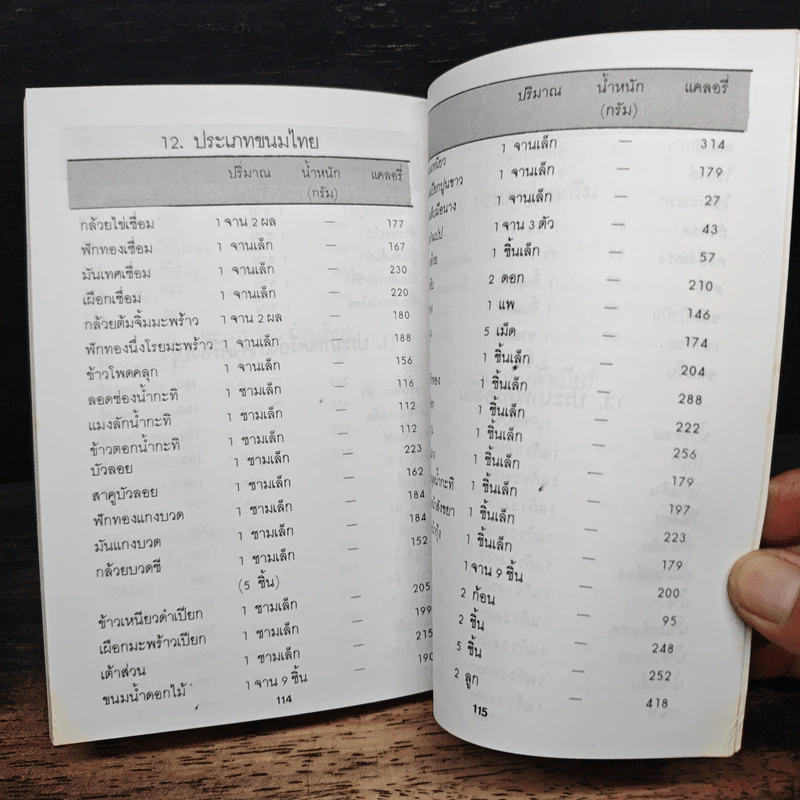 12. ประเภทขนมไทย
ปริมาณ น้ำหนัก (กรัม) แคลอรี่
กล้วยไข่เชื่อม 1 จาน 2 ผล — 177
ฟักทองเชื่อม 1 จานเล็ก — 167
มันเทศเชื่อม 1 จานเล็ก — 230
เผือกเชื่อม 1 จานเล็ก — 220
กล้วยต้มจิ้มมะพร้าว 1 จาน 2 ผล — 180
ฟักทองนึ่งโรยมะพร้าว 1 จานเล็ก — 188
ข้าวโพดคลุก 1 จานเล็ก — 156
ลอดช่องน้ำกะทิ 1 ชามเล็ก — 116
แมงลักน้ำกะทิ 1 ชามเล็ก — 112
ข้าวตอกน้ำกะทิ 1 ชามเล็ก — 112
บัวลอย 1 ชามเล็ก — 223
สาคูบัวลอย 1 ชามเล็ก — 162
ฟักทองแกงบวด 1 ชามเล็ก — 184
มันแกงบวด 1 ชามเล็ก — 184
กล้วยบวดชี 1 ชามเล็ก — 152
(5 ชิ้น)
ข้าวเหนียวดำเปียก 1 ชามเล็ก — 205
เผือกมะพร้าวเปียก 1 ชามเล็ก — 199
เต้าส่วน 1 ชามเล็ก — 215
ขนมน้ำดอกไม้ 1 จาน 9 ชิ้น — 190
114
ปริมาณ น้ำหนัก (กรัม) แคลอรี่
1 จานเล็ก — 314
1 จานเล็ก — 179
1 จานเล็ก — 27
1 จาน 3 ตัว — 43
1 ชิ้นเล็ก — 57
2 ดอก — 210
1 แพ — 146
5 เม็ด — 174
1 ชิ้นเล็ก — 204
1 ชิ้นเล็ก — 288
1 ชิ้นเล็ก — 222
1 ชิ้นเล็ก — 256
1 ชิ้นเล็ก — 179
1 ชิ้นเล็ก — 197
1 ชิ้นเล็ก — 223
1 ชิ้นเล็ก — 179
1จาน 9 ชิ้น — 200
2 ก้อน — 95
2 ชิ้น — 248
5 ชิ้น — 252
2 ลูก — 418
115